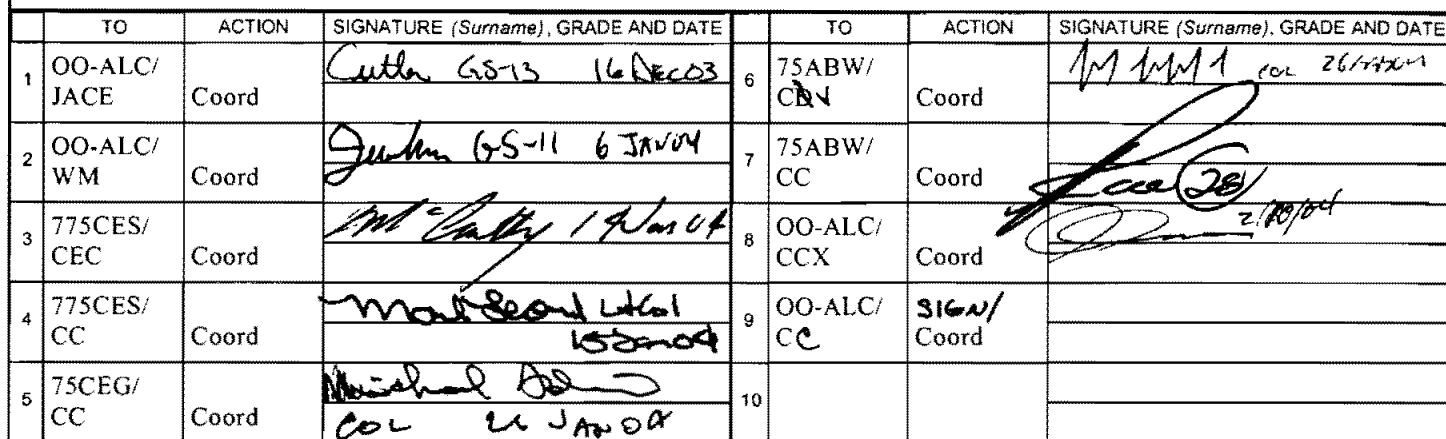 TO ACTION SIGNATURE (Surname), GRADE AND DATE TO ACTION SIGNATURE (Surname), GRADE AND DATE
1 OO-ALC/ JACE Coord Cutler GS-13 16 DEC03
6 75ABW/ Coord COL
2 OO-ALC/ WM Coord GS-11 6 JAN04
7 75ABW/ CC Coord 28
3 775CES/ CEC Coord McCarthy
8 OO-ALC/ CCX Coord
4 775CES/ CC Coord LtCol
15Jan04
9 OO-ALC/ CC SIGN/ Coord
5 75CEG/ CC Coord Michael
COL 26 JAN 04
10